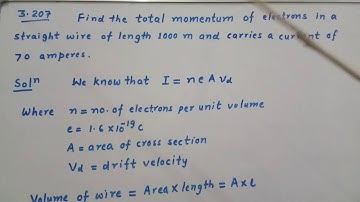 3.207 Find the total momentum of electrons in a
straight wire of length 1000 m and carries a current of
70 amperes.
Solⁿ We know that I = n e A Vd
Where n = no. of electrons per unit volume
e = 1.6 × 10⁻¹⁹ C
A = area of cross section
Vd = drift velocity
Volume of wire = Area × length = A × l